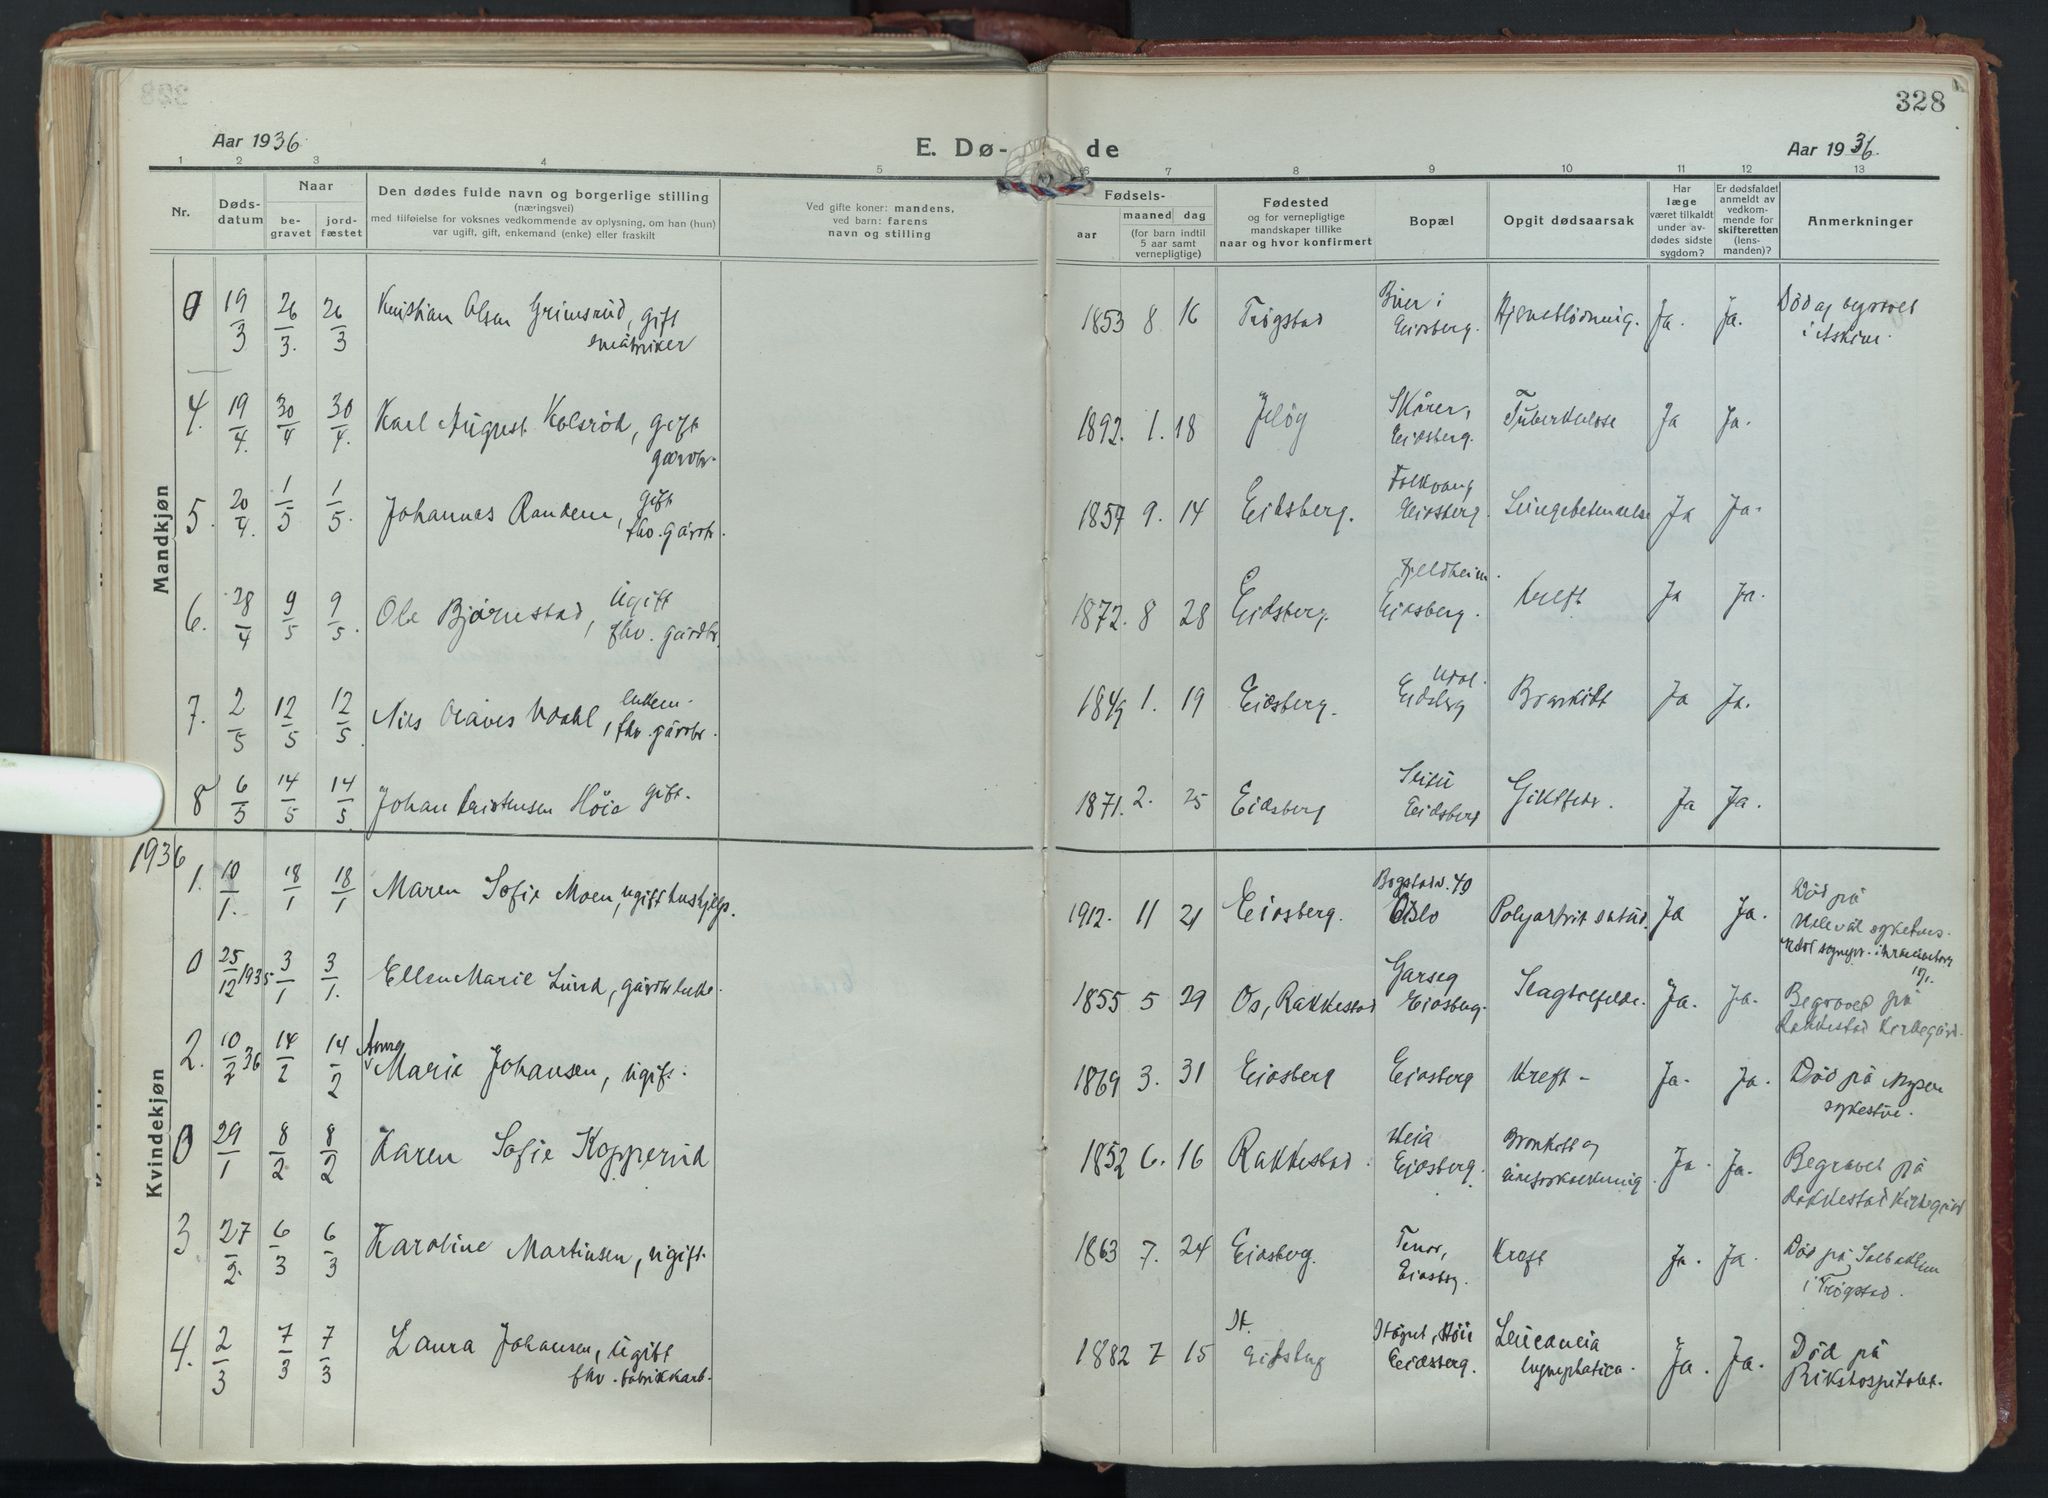 328
Aar 1936
E. Dø-
de
Aar 1936.
1 2 3 4 5 6 7 8 9 10 11 12 13
Nr.
Døds-
datum
Naar
be-
gravet
jord-
fæstet
Den dødes fulde navn og borgerlige stilling
(næringsvei)
med tilføielse for voksnes vedkommende av oplysning, om han (hun)
var ugift, gift, enkemand (enke) eller fraskilt
Ved gifte koner: mandens,
ved barn: farens
navn og stilling
Fødsels-
aar
maaned dag
(for barn indtil
5 aar samt
vernepligtige)
Fødested
og for vernepligtige
mandskaper tillike
naar og hvor konfirmert
Bopæl
Opgit dødsaarsak
Har
læge
været tilkaldt
under av-
dødes sidste
sygdom?
Er dødsfaldet
anmeldt av
vedkom-
mende for
skifteretten
(lens-
manden)?
Anmerkninger
Mandkjøn
0 19/3 26/3. 26/3 Kristian Olsen Grimsrud, gift
småbruker
1853 8. 16 Trøgstad
Eidsberg. Hjerneblödning. Ja. Ja. Død og begravet
i Askim.
4. 19/4. 30/4 30/4. Karl August Kolsrød, gift
gårdbr.
1892. 1. 18
Skårer,
Eidsberg. Tuberkulose Ja Ja.
5. 20/4. 1/5 1/5. Johannes Randem, gift
fhv. gårdbr.
1857 9. 14 Eidsberg.
Folkvang
Eidsberg. Lungebetendelse Ja Ja.
6. 28/4 9/5 9/5. Ole Bjørnestad, ugift
fhv. gårdbr.
1872. 8 28 Eidsberg.
Fjeldheim.
Eidsberg. Kreft Ja Ja.
7. 2/5 12/5 12/5. Nils Olaves Udahl, enkem.
fhv. gårdbr.
1849 1. 19 Eidsberg.
Eidsberg Bronkitt Ja Ja.
8 6/5 14/5 14/5. Johan Kristensen Höie gift.
1871. 2. 25 Eidsberg
Eidsberg Giktfeber. Ja Ja.
1936
Kvindekjøn
1. 10/1. 18/1 18/1 Maren Sofie Moen, ugift hushjelp.
1912. 11 21 Eidsberg.
Bogstadv. 40
Oslo Ja Ja. Död på
Ullevål sykehus.
0 25/12 1935 3/1 3/1. Ellen Marie Lund, gårdbr enke.
1855 5 29 Os, Rakkestad
Garseg
Eidsberg. Ja. Ja. Begravet på
Rakkestad Kirkegård.
2. 10/2 36 14/2 14/2 Anna
Marie Johansen, ugift.
1869 3. 31 Eidsberg Eidsberg Kreft - Ja. Ja. Død på Mysen
sykestue.
0 29/1 8/2 8/2 Karen Sofie Kopperud
1852 6. 16 Rakkestad.
Heia
Eidsberg. Bronkitt og
åreforkalkning Ja. Ja. Begravet på
Rakkestad Kirkegård
3 27/2. 6/3 6/3 Karoline Martinsen, ugift.
1863 7. 24 Eidsberg.
Tenor,
Eidsberg. Kreft Ja. Ja. Död på
i Trøgstad.
4. 2/3 7/3 7/3 Laura Johansen, ugift
fhv. fabrikkarb.
1882 7 15 Eidsberg
Eidsberg. Leucaneia
lymphatica. Ja. Ja. Död på
Rikshospitalet.